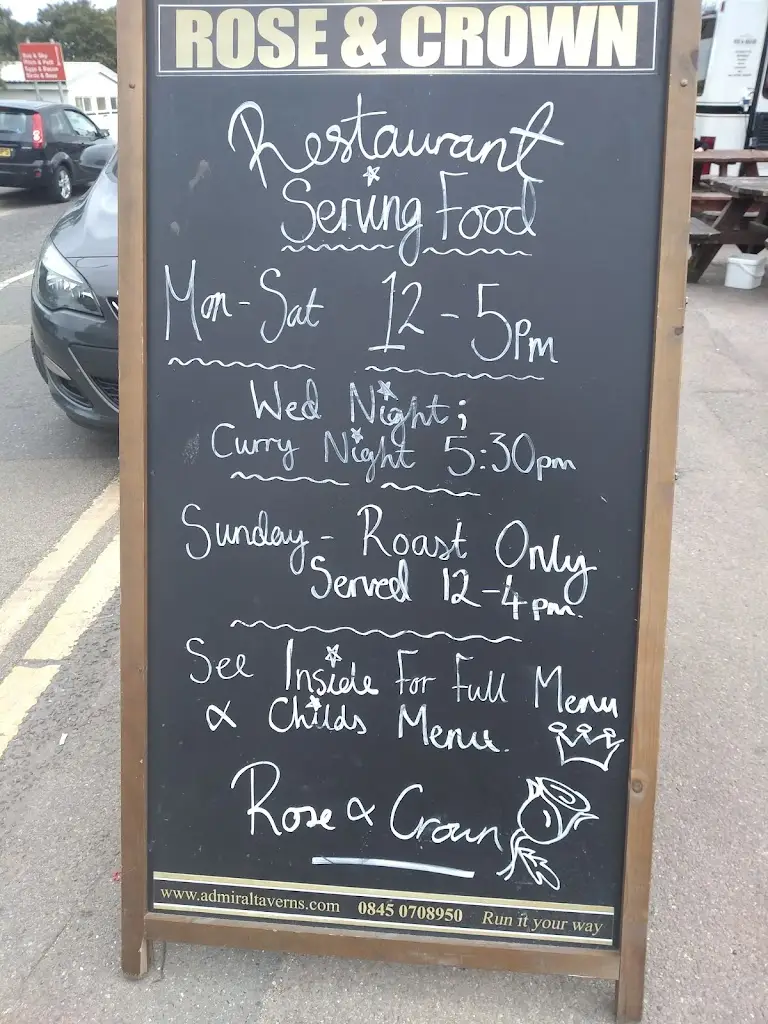 Sea & Sky
Pitch & Putt
Eggs & Bacon
Birds & Bees
ROSE & CROWN
Restaurant
Serving Food
Mon-Sat 12-5pm
Wed Night;
Curry Night 5:30pm
Sunday - Roast Only
Served 12-4pm.
See Inside For Full Menu
& Childs Menu.
Rose & Crown
www.admiraltaverns.com 0845 0708950 Run it your way